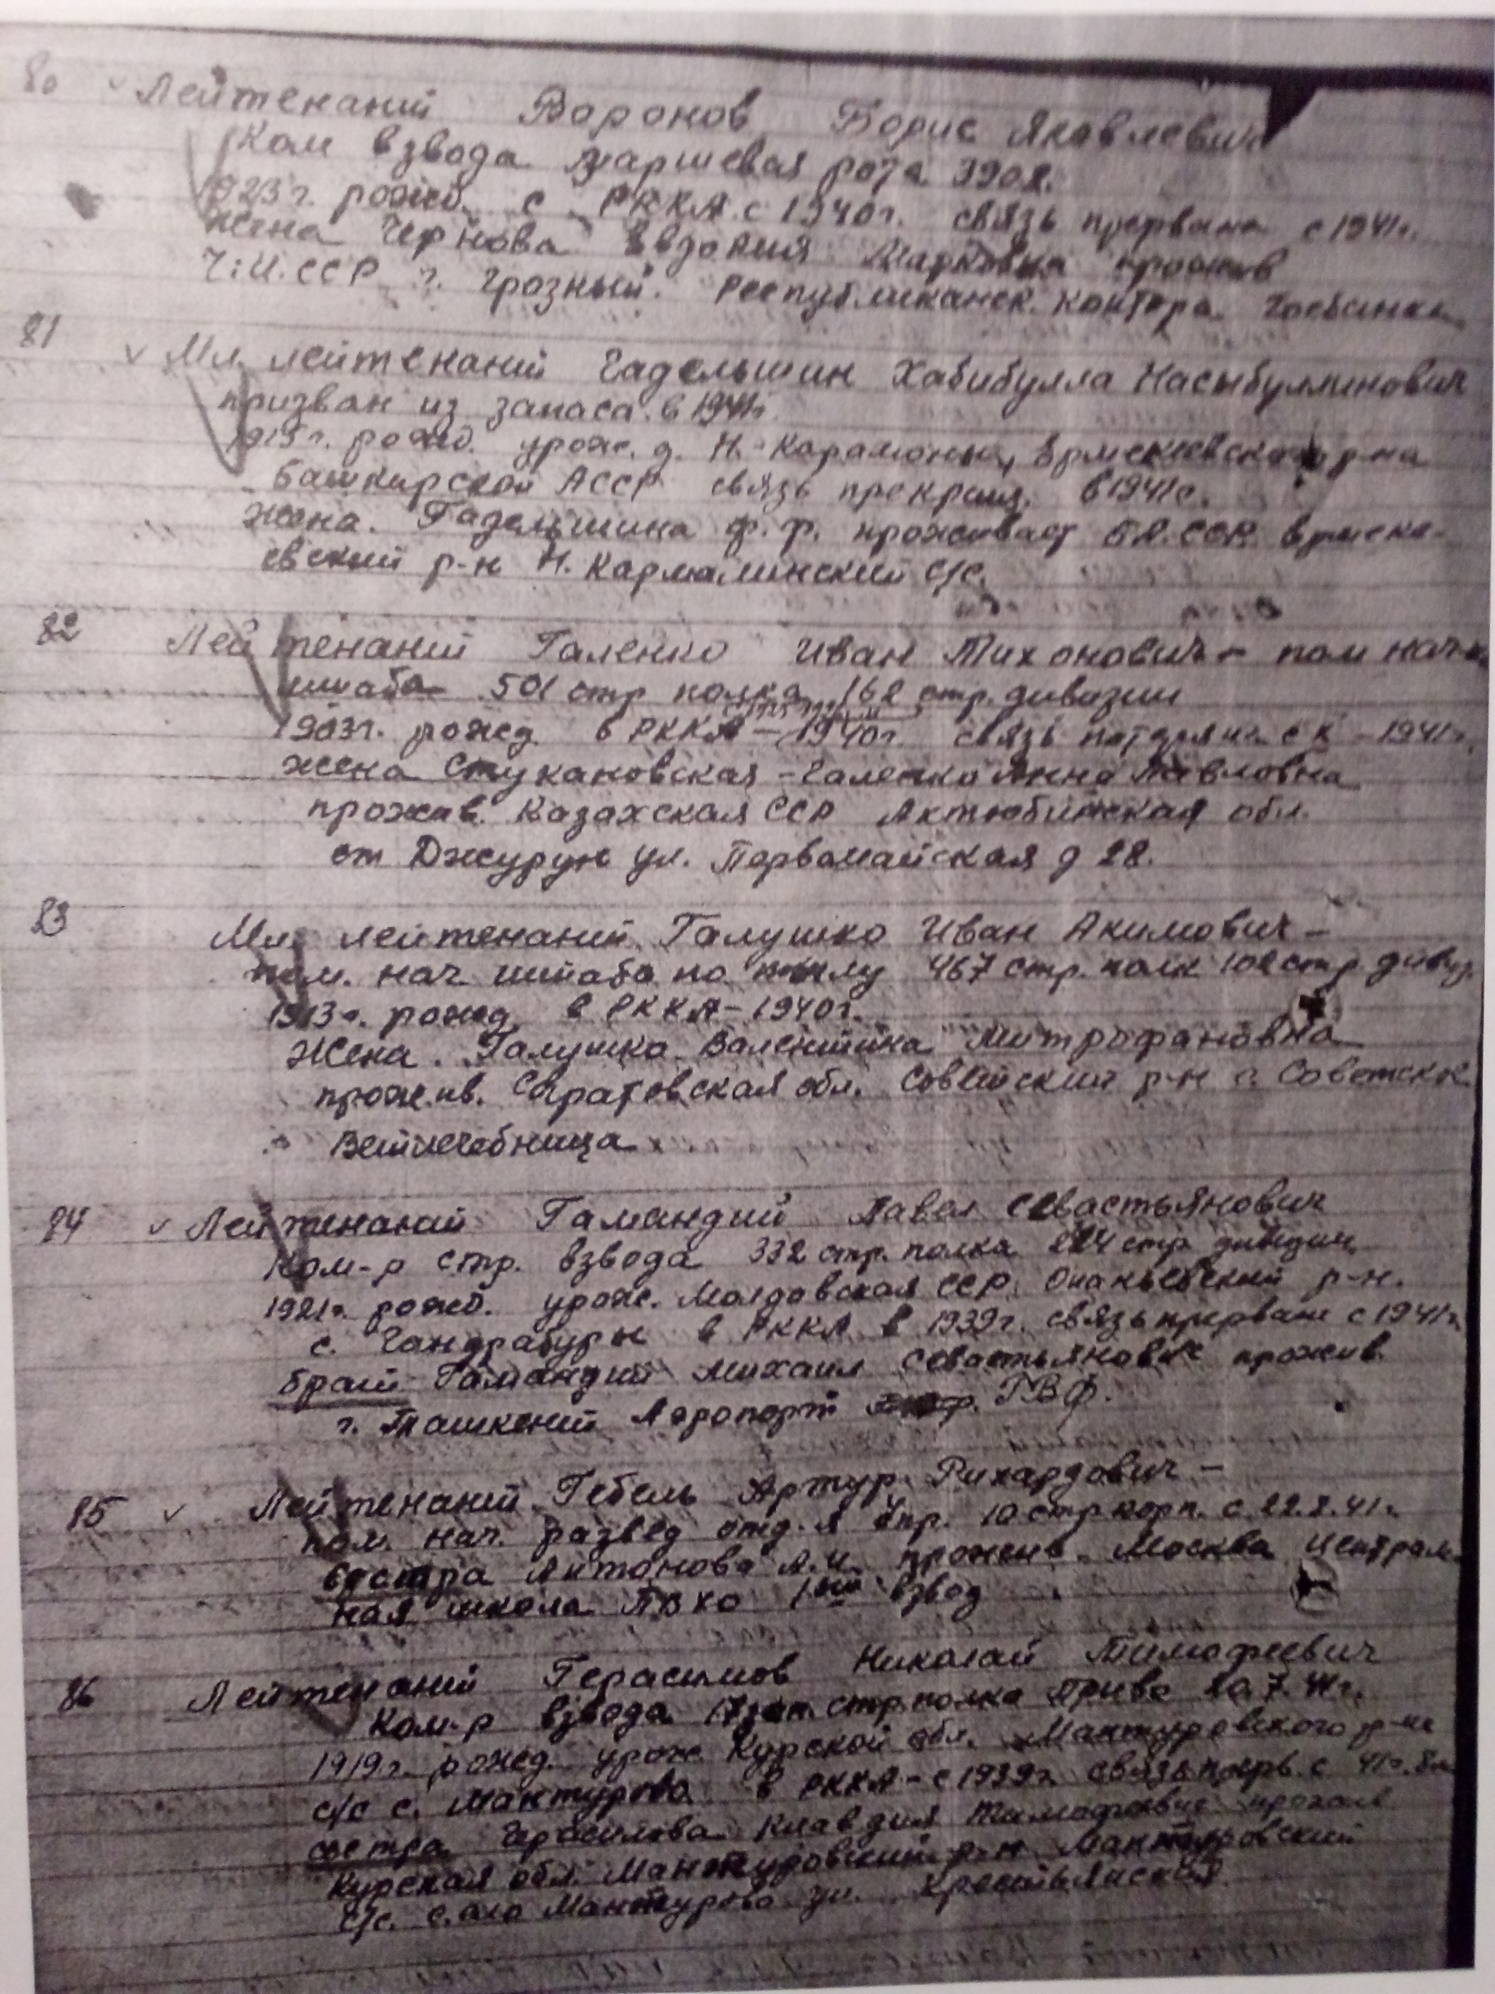 80 Лейтенант Воронов Борис Яковлевич
Ком взвода маршевая рота 390 г.
1923 г. рожд. с РККА с 1940 г. связь прервана с 1941 г.
Жена Чернова Евдокия Марковна прожив
Ч.И.ССР г. Грозный. Республиканск. контора Госбанка
81 Мл. лейтенант Гадельшин Хабибулла Насыбуллинович
призван из запаса в 1941 г.
рожд. урож. д. Н. Карамалы, Ермекеевского р-на
Башкирской АССР связь прекращ. в 1941 г.
Жена. Гадельшина Ф. Р. проживает ССР. Ермеке-
евский р-н Н. Кармалинский с/с.
82 Лейтенант Галенко Иван Тихонович – пом нач-ка
штаба 501 стр полка 162 стр. дивизии
1903 г. рожд. в РККА – 1940 г. связь 1941 г.
Жена Стукановская – Галенко Анна Павловна
прожив. Казахская ССР Актюбинская обл.
ст Джурун ул. Первомайская д 28.
83 Мл. лейтенант Галушко Иван Акимович –
пом. нач штаба по тылу 467 стр. полк 102 стр. дивиз.
1913 г. рожд. в РККА – 1940 г.
Жена. Галушко Валентина Митрофановна
прожив. Саратовская обл. Советский р-н с. Советское
Ветлечебница
84 Лейтенант Гамандий Павел Севастьянович
Ком-р стр. взвода 332 стр. полка стр дивизии
1921 г. рожд. урож. Молдавская ССР. Ананьевский р-н.
с. Гандрабуры в РККА в 1939 г. связь прервана с 1941 г.
брат Гамандий Михаил Севастьянович прожив.
г. Ташкент Аэропорт ГВФ.
85 Лейтенант Гебель Артур Рихардович –
пом. нач. развед отд-я Упр. 10 стр корп. с 22.2.41 г.
сестра Антонова А.И. прожив. Москва Централь-
ная школа ПВХО 1ый взвод
86 Лейтенант Герасимов Николай Тимофеевич
Ком-р взвода 17 зап. стр полка
1919 г. рожд. урож. Курской обл. Мантуровского р-на
с/с с. Мантурово в РККА – с 1939 г. связь с 41 г.
сестра Герасимова Клавдия Тимофеевна прожив
Курская обл. Мантуровский р-н Мантуровский
с/с. село Мантурово ул. Крестьянская